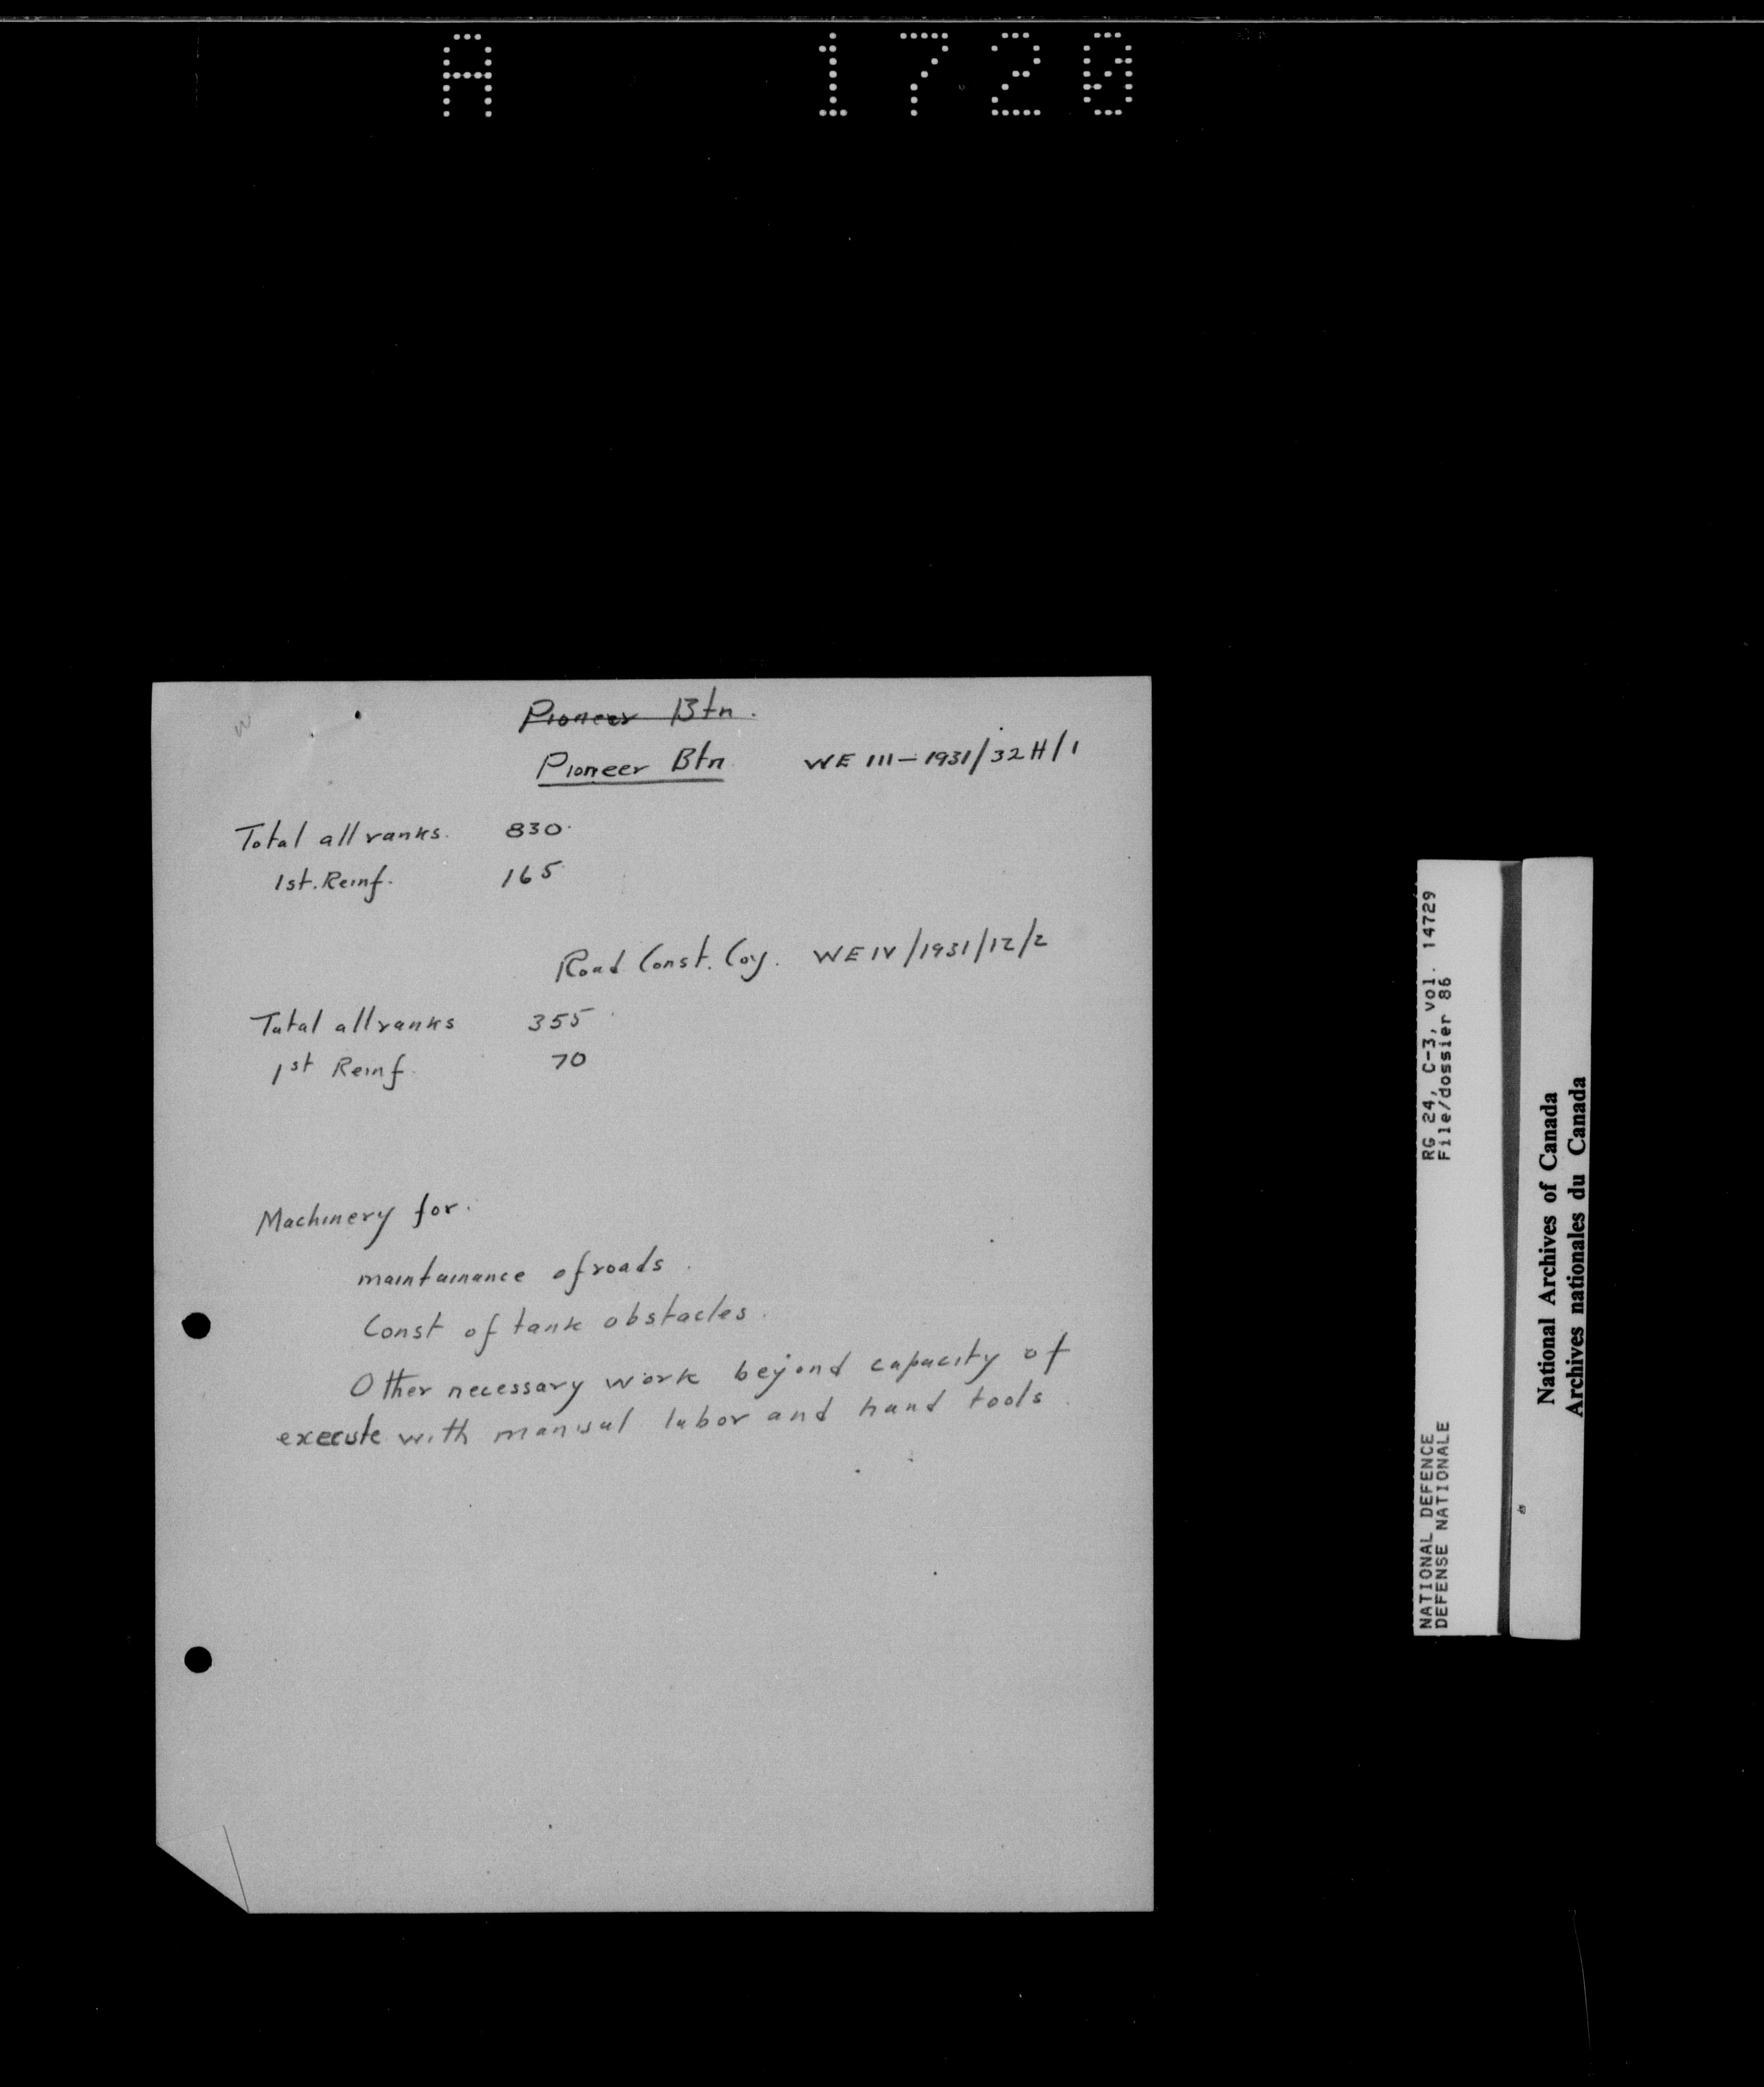 A 1720
Pioneer Btn.
Pioneer Btn WE III - 1931/32 H/1
Total all ranks. 830.
1st. Reinf. 165
Road Const. Coy. WE IV/1931/12/2
Total all ranks 355
1st Reinf. 70
Machinery for.
maintainance of roads.
Const of tank obstacles.
Other necessary work beyond capacity of
execute with manual labor and hand tools.
NATIONAL DEFENCE RG 24, C-3, vol. 14729
DEFENSE NATIONALE File/dossier 86
National Archives of Canada
Archives nationales du Canada